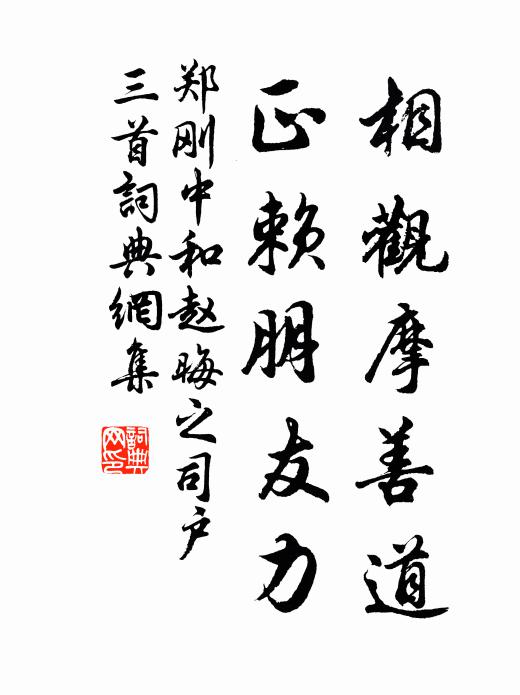 相觀摩善道
正賴朋友力
郑刚中和赵晦之司户
三首詞典網集
詞典
网印